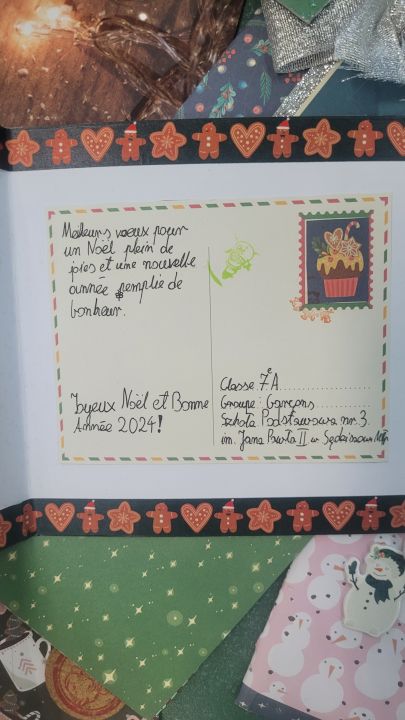 Meilleurs voeux pour
un Noël plein de
joies et une nouvelle
année remplie de
bonheur.
Joyeux Noël et Bonne
Année 2024!
Classe 7e A
Groupe: Garçons
Szkoła Podstawowa nr. 3.
im. Jana Pawła II w Sędziszowie Młp